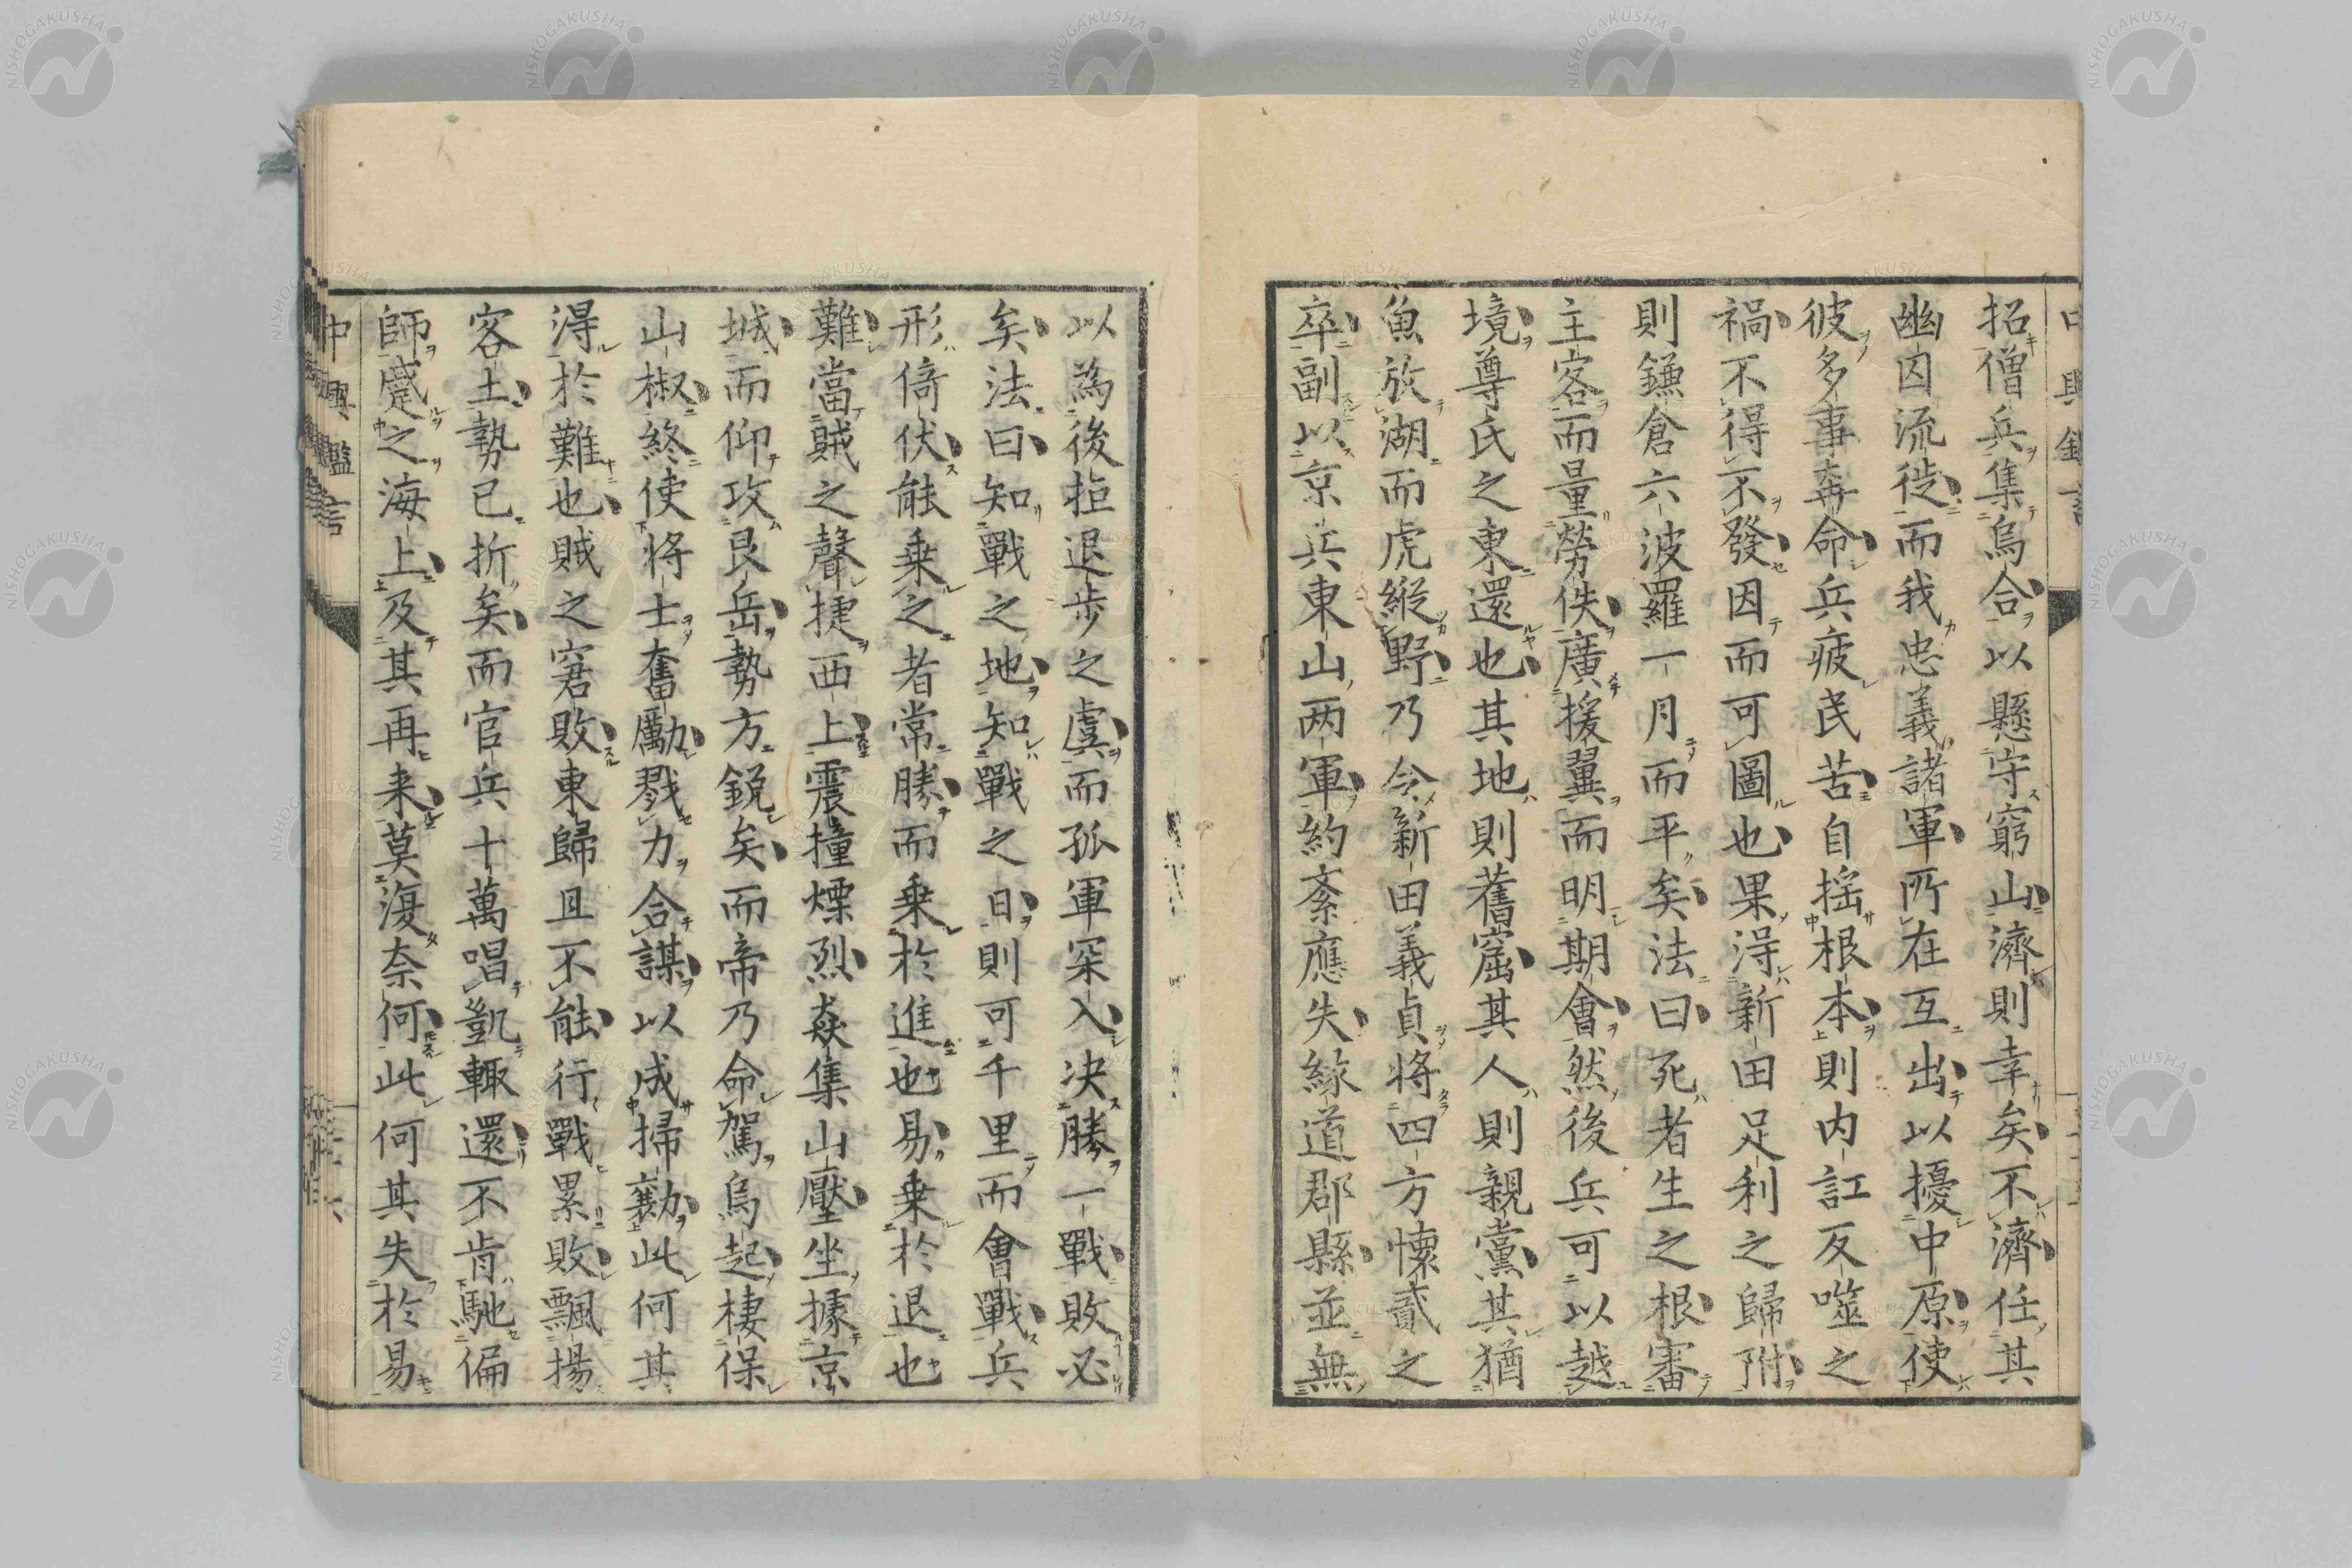 招僧兵集烏合以懸守窮山濟則幸矣不濟任其
幽囚流徙而我忠義諸軍所在互出以擾中原使
彼多事奔命兵疲民苦自搖根本則内訌反噬之
禍不得不發因而可圖也果淂新田足利之歸附
則鎌倉六波羅一月而平矣法曰死者生之根審
主客而量勞佚廣援翼而明期會然後兵可以越
境尊氏之東還也其地則舊窟其人則親黨其猶
魚放湖而虎縱野乃令新田義貞將四方懷貳之
卒副以京兵東山两軍約紊應失緣道郡縣並無
以為後拒退步之虞而孤軍罙入决勝一戰敗必
矣法曰知戰之地知戰之日則可千里而會戰兵
形倚伏能乗之者常勝而乗於進也易乗於退也
難當賊之聲捷西上震撞爍烈猋集山壓坐據京
城而仰攻艮岳勢方鋭矣而帝乃命駕烏起棲保
山椒終使将士奮勵戮力合謀以成掃勷此何其
淂於難也賊之窘敗東歸且不能行戰累敗飄揚
客土勢已折矣而官兵十萬唱凱輙還不肯馳偏
師蹙之海上及其再来莫復奈何此何其失於易
中興鑑言
NISHOGAKUSHA